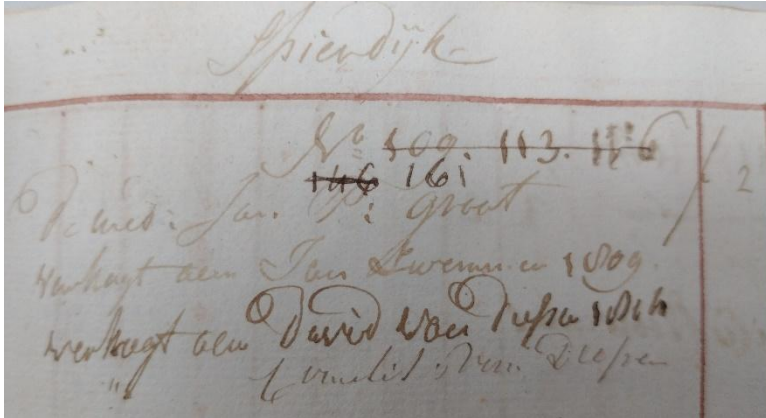 Spierdijk
No 109. 113. 116
146 161
De wed: Jan P: Groot / 2
verkogt aen Jan 1809.
verkogt aen David van Diepen 1816
" Cornelis van Diepen